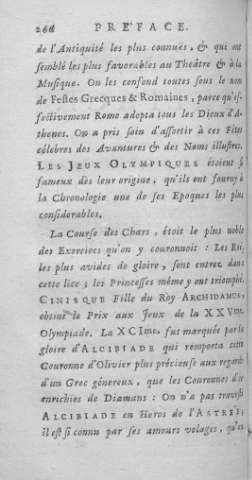 266 PRÉFACE.
de l'Antiquité les plus connuës, & qui ont
semblé les plus favorables au Theâtre & à la
Musique. On les confond toutes sous le nom
de Festes Grecques & Romaines, parce qu'ef-
fectivement Rome adopta tous les Dieux d'A-
thenes. On a pris soin d'assortir à ces Fêtes
célebres des Avantures & des Noms illustres.
LES JEUX OLYMPIQUES étoient si
fameux dès leur origine, qu'ils ont fourny à
la Chronologie une de ses Epoques les plus
considerables.
La Course des Chars, étoit le plus noble
des Exercices qu'on y couronnoit : Les Rois,
les plus avides de gloire, sont entrez dans
cette lice ; les Princesses même y ont triomphé.
CINISQUE Fille du Roy ARCHIDAMUS,
obtint le Prix aux Jeux de la XXVme.
Olympiade. La XCIme. fut marquée par la
gloire d'ALCIBIADE qui remporta cette
Couronne d'Olivier plus précieuse aux regards
d'un Grec génereux, que les Couronnes d'or
enrichies de Diamans : On n'a pas travesti
ALCIBIADE en Heros de l'ASTRÉE;
il est si connu par ses amours volages, qu'on